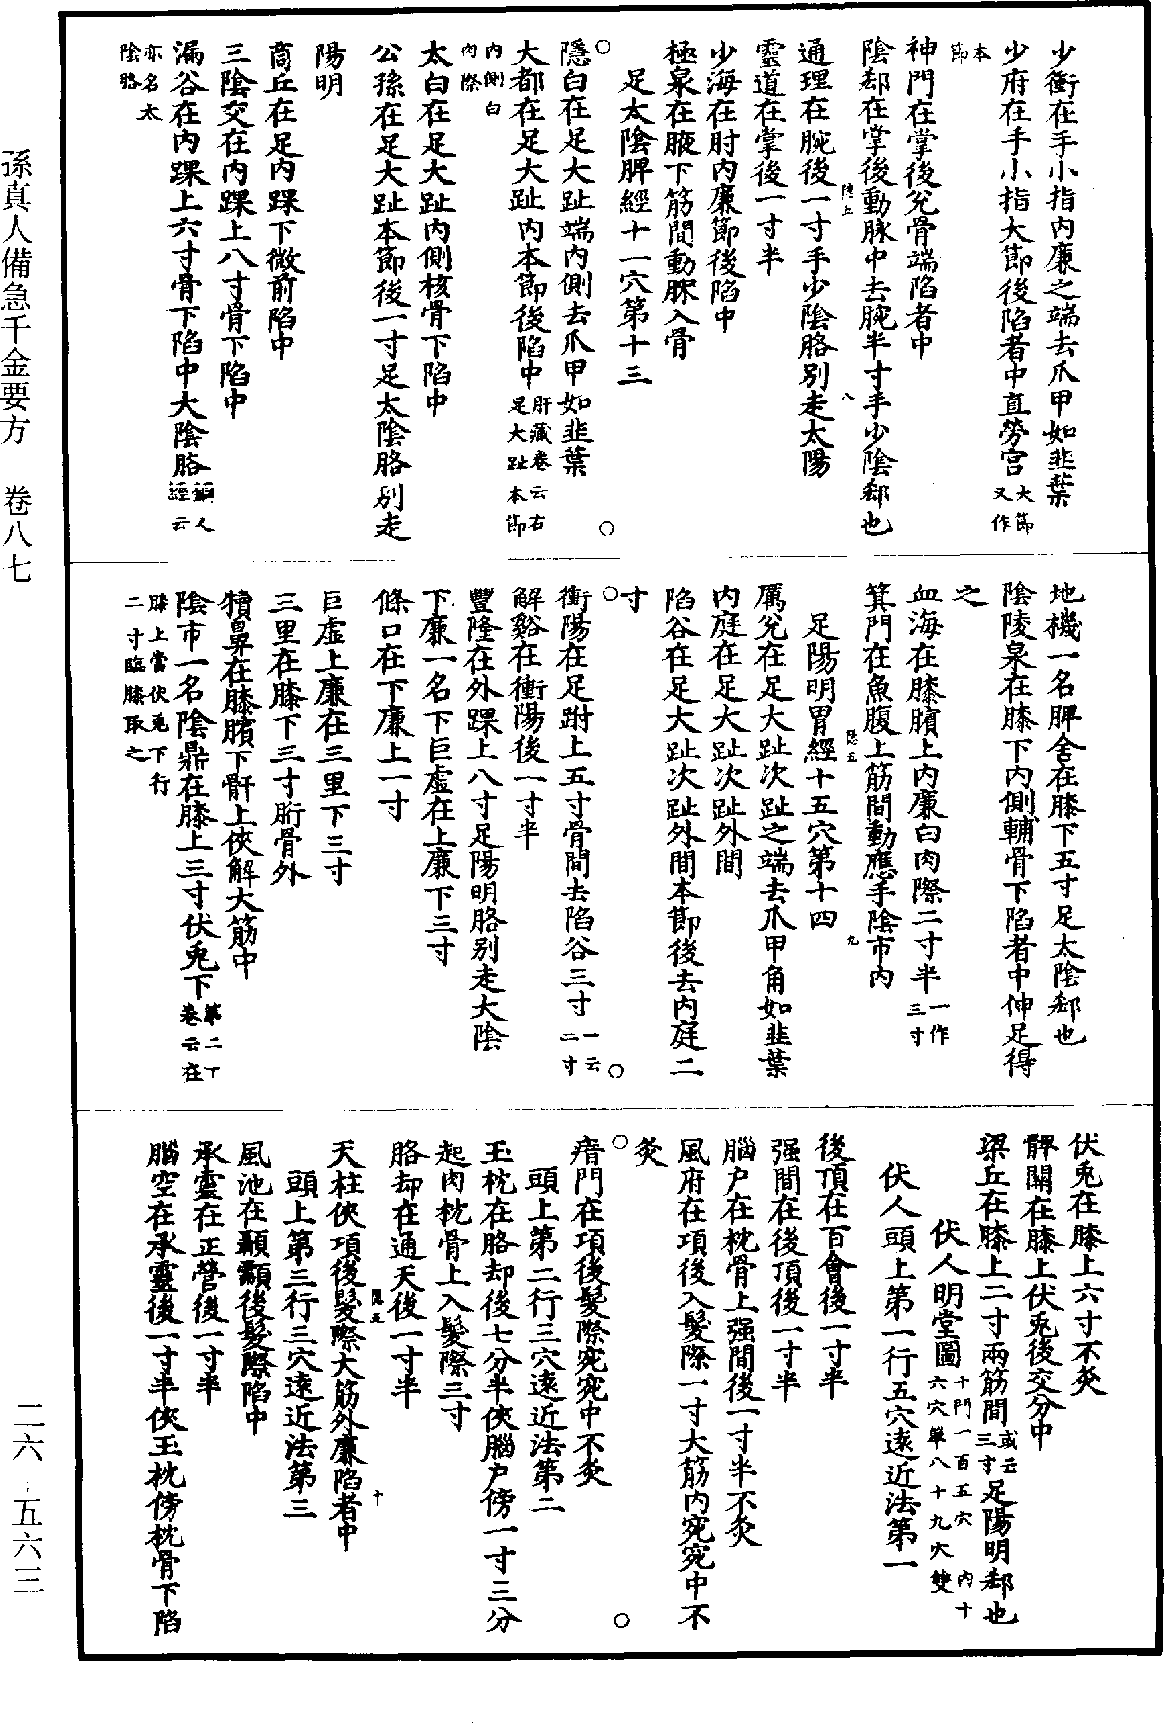 少衝在手小指內廉之端去爪甲如韭葉
少府在手小指大節後陷者中直勞宮大節又作
本節
神門在掌後兌骨端陷者中
陰郄在掌後動脉中去腕半寸手少陰郄也
通理在腕後一寸手少陰胳別走太陽
靈道在掌後一寸半
少海在肘內廉節後陷中
極泉在腋下筋間動脈入骨
足太陰脾經十一穴第十三
隱白在足大趾端內側去爪甲如韭葉
大都在足大趾內本節後陷中肝藏卷云右足大趾本節
內側白肉際
太白在足大趾內側核骨下陷中
公孫在足大趾本節後一寸足太陰胳別走
陽明
商丘在足內踝下微前陷中
三陰交在內踝上八寸骨下陷中
漏谷在內踝上六寸骨下陷中大陰胳銅人經云
亦名太陰胳
地機一名脾舍在膝下五寸足太陰郄也
陰陵泉在膝下內側輔骨下陷者中伸足得
之
血海在膝臏上內廉白肉際二寸半一作三寸
箕門在魚腹上筋間動應手陰市內
足陽明胃經十五穴第十四
厲兌在足大趾次趾之端去爪甲角如韭葉
內庭在足大趾次趾外間
陷谷在足大趾次趾外間本節後去內庭二
寸
衝陽在足跗上五寸骨間去陷谷三寸一云二寸
解谿在衝陽後一寸半
豐隆在外踝上八寸足陽明胳別走大陰
下廉一名下巨虛在上廉下三寸
條口在下廉上一寸
巨虛上廉在三里下三寸
三里在膝下三寸胻骨外
犢鼻在膝臏下骭上俠解大筋中
陰市一名陰鼎在膝上三寸伏兎下第二丁卷云在
膝上當伏兎下行二寸臨膝取之
伏兎在膝上六寸不灸
髀關在膝上伏兎後交分中
梁丘在膝上二寸兩筋間或云三寸足陽明郄也
伏人明堂圖十門一百五穴內十六穴單八十九穴雙
伏人頭上第一行五穴遠近法第一
後頂在百會後一寸半
强間在後頂後一寸半
腦户在枕骨上强間後一寸半不灸
風府在項後入髮際一寸大筋內宛宛中不
灸
瘖門在項後髮際宛宛中不灸
頭上第二行三穴遠近法第二
玉枕在胳却後七分半俠腦户傍一寸三分
起肉枕骨上入髮際三寸
胳却在通天後一寸半
天柱俠項後髮際大筋外廉陷者中
頭上第三行三穴遠近法第三
風池在顳顬後髮際陷中
承靈在正營後一寸半
腦空在承靈後一寸半俠玉枕傍枕骨下陷
孫真人備急千金要方 卷八七
二六·五六三